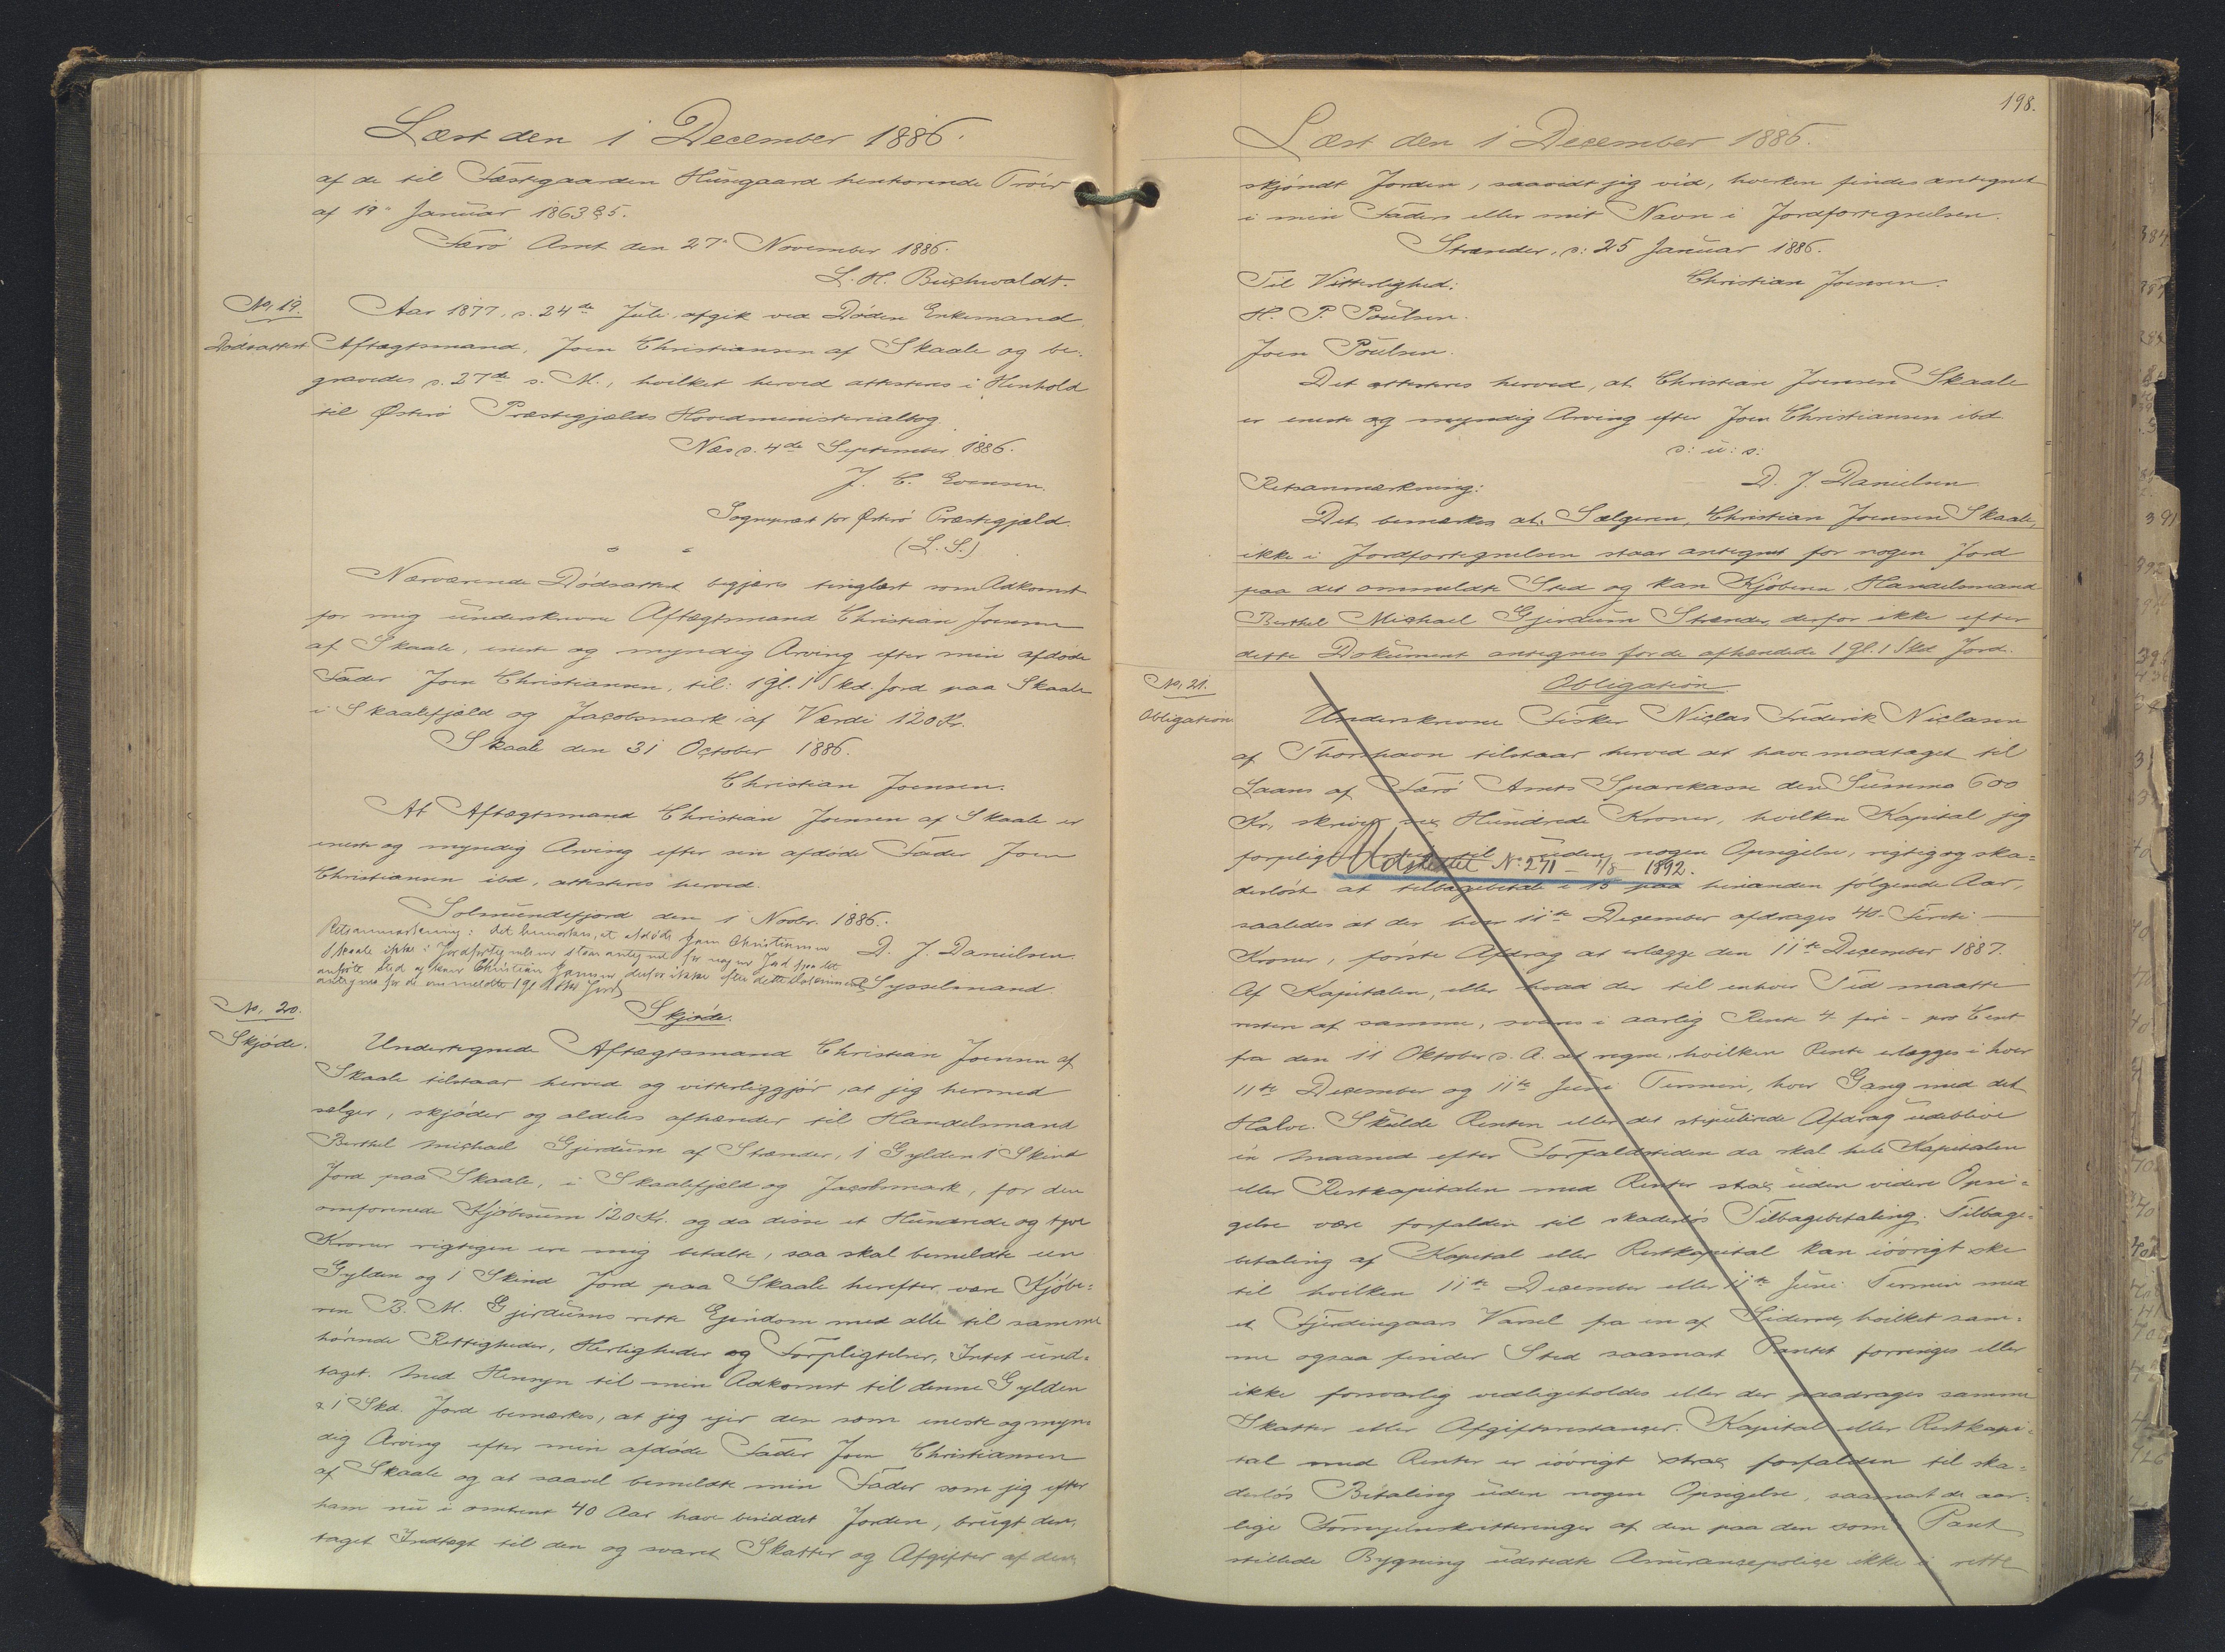 Læst den 1 December 1886.
af de til Fæstegaarden Húsegaard henhørende Tröer
af 19de Januar 1863 § 5.
Færö Amt den 27de November 1886.
L. H. Buchwaldt.
No. 19.
Dødsattest
Aar 1877, d. 24de Juli, afgik ved Døden Enkemand
Aftægtsmand, Joen Christiansen af Skaale og be-
gravedes d. 27de s. M., hvilket herved attesteres i Henhold
til Østerø Præstegjælds Hovedministerialbog.
Næs d. 4de September 1886.
J. C. Evensen.
Sognepræst for Østerö Præstegjæld.
(L. S.)
Nærværende Dødsattest begjæres tinglæst som Adkomst
for mig underskrevne Aftægtsmand Christian Joensen
af Skaale, eneste og myndig Arving efter min afdøde
Fader Joen Christiansen, til: 1 gl. 1 Skd. Jord paa Skaale
i Skaalefjæld og Jacobsmark, af Værdi 120 Kr.
Skaale den 31 October 1886.
Christian Joensen.
At Aftægtsmand Christian Joensen af Skaale er
eneste og myndig Arving efter sin afdøde Fader Joen
Christiansen ibd, attesteres herved.
Solmundefjord den 1 Novbr. 1886.
D. J. Danielsen
Sysselmand.
Retsanmærkning: Det bemærkes, at afdøde Joen Christiansen
Skaale ikke i Jordfortegnelsen staar antegnet for nogen Jord paa det
anførte Sted og kan Christian Joensen derfor ikke efter dette Dokument
antegnes for de ommeldte 1 gl 1 Skd Jord
No. 20.
Skjøde.
Skjøde.
Undertegnede Aftægtsmand Christian Joensen af
Skaale tilstaar herved og vitterliggjør, at jeg hermed
sælger, skjøder og aldeles afhænder til Handelsmand
Berthel Michael Gjerdum af Strænder, 1 Gylden 1 Skind
Jord paa Skaale, i Skaalefjæld og Jacobsmark, for den
omforenede Kjøbesum 120 Kr. og da disse et Hundrede og tyve
Kroner rigtigen ere mig betalte, saa skal bemeldte en
Gylden og 1 Skind Jord paa Skaale herefter være Kjøbe-
ren B. M. Gjerdums rette Ejendom med alle til samme
hörende Rettigheder, Herligheder og Forpligtelser, Intet und-
taget. Med Hensyn til min Adkomst til denne Gylden
& 1 Skd. Jord bemærkes, at jeg ejer den som eneste og myn-
dig Arving efter min afdøde Fader Joen Christiansen
af Skaale og at saavel bemeldte min Fader som jeg efter
ham nu i omtrent 40 Aar have besiddet Jorden, brugt den,
taget Indtægt til den og svaret Skatter og Afgifter af den,
198.
Læst den 1 December 1886.
skjöndt Jorden, saavidt jeg véd, hverken findes antegnet
i min Faders eller mit Navn i Jordfortegnelsen.
Strænder, d: 25 Januar 1886.
Christian Joensen.
Til Vitterlighed:
H. P. Poulsen.
Joen Poulsen.
Det attesteres herved, at Christian Joensen Skaale
er eneste og myndig Arving efter Joen Christiansen ibd
d: u: s:
D. J. Danielsen
Retsanmærkning:
Det bemærkes at Sælgeren, Christian Joensen Skaale,
ikke i Jordfortegnelsen staar antegnet for nogen Jord
paa det ommeldte Sted og kan Kjøberen, Handelsmand
Berthel Michael Gjerdum Strænder, derfor ikke efter
dette Dokument antegnes for de afhændede 1 gl. 1 Skd Jord.
No. 21.
Obligation.
Obligation
Underskrevne Fisker Niclas Frederik Niclasen
af Thorshavn tilstaar herved at have modtaget til
Laans af Færö Amts Sparekasse den Summa 600
Kr., skriver sex Hundrede Kroner, hvilken Kapital jeg
forpligter mig til uden nogen Opsigelse, rigtig og ska-
deslöst at tilbagebetale i 15 paa hinanden fölgende Aar,
Udslettet No. 271 – 1/8 – 1892.
saaledes at der hver 11te December afdrages 40 - Fireti -
Kroner, förste Afdrag at erlægge den 11te December 1887.
Af Kapitalen, eller hvad der til enhver Tid maatte
restere af samme, svares i aarlig Rente 4 - fire - pro Cent
fra den 11 Oktober d. A. at regne, hvilken Rente erlægges i hver
11te December og 11te Juni Termin, hver Gang med det
Halve. Skulde Renten eller det stipulerede Afdrag udeblive
én Maaned efter Forfaldstiden da skal hele Kapitalen
eller Restkapitalen med Renter strax uden videre Opsi-
gelse være forfalden til skadeslös Tilbagebetaling. Tilbage-
betaling af Kapital eller Restkapital kan iövrigt ske
til hvilken 11te December eller 11te Juni Termin med
et Fjerdingaars Varsel fra en af Siderne, hvilket sam-
me ogsaa finder Sted saasnart Pantet forringes eller
ikke forsvarlig vedligeholdes eller der paadrages samme
Skatter eller Afgiftsrestancer. Kapital eller Restkapi-
tal med Renter er iövrigt strax forfalden til ska-
deslös Betaling uden nogen Opsigelse, saasnart de aar-
lige Fornyelseskvitteringer af den paa den som Pant
stillede Bygning udstedte Assurancepolice ikke i rette